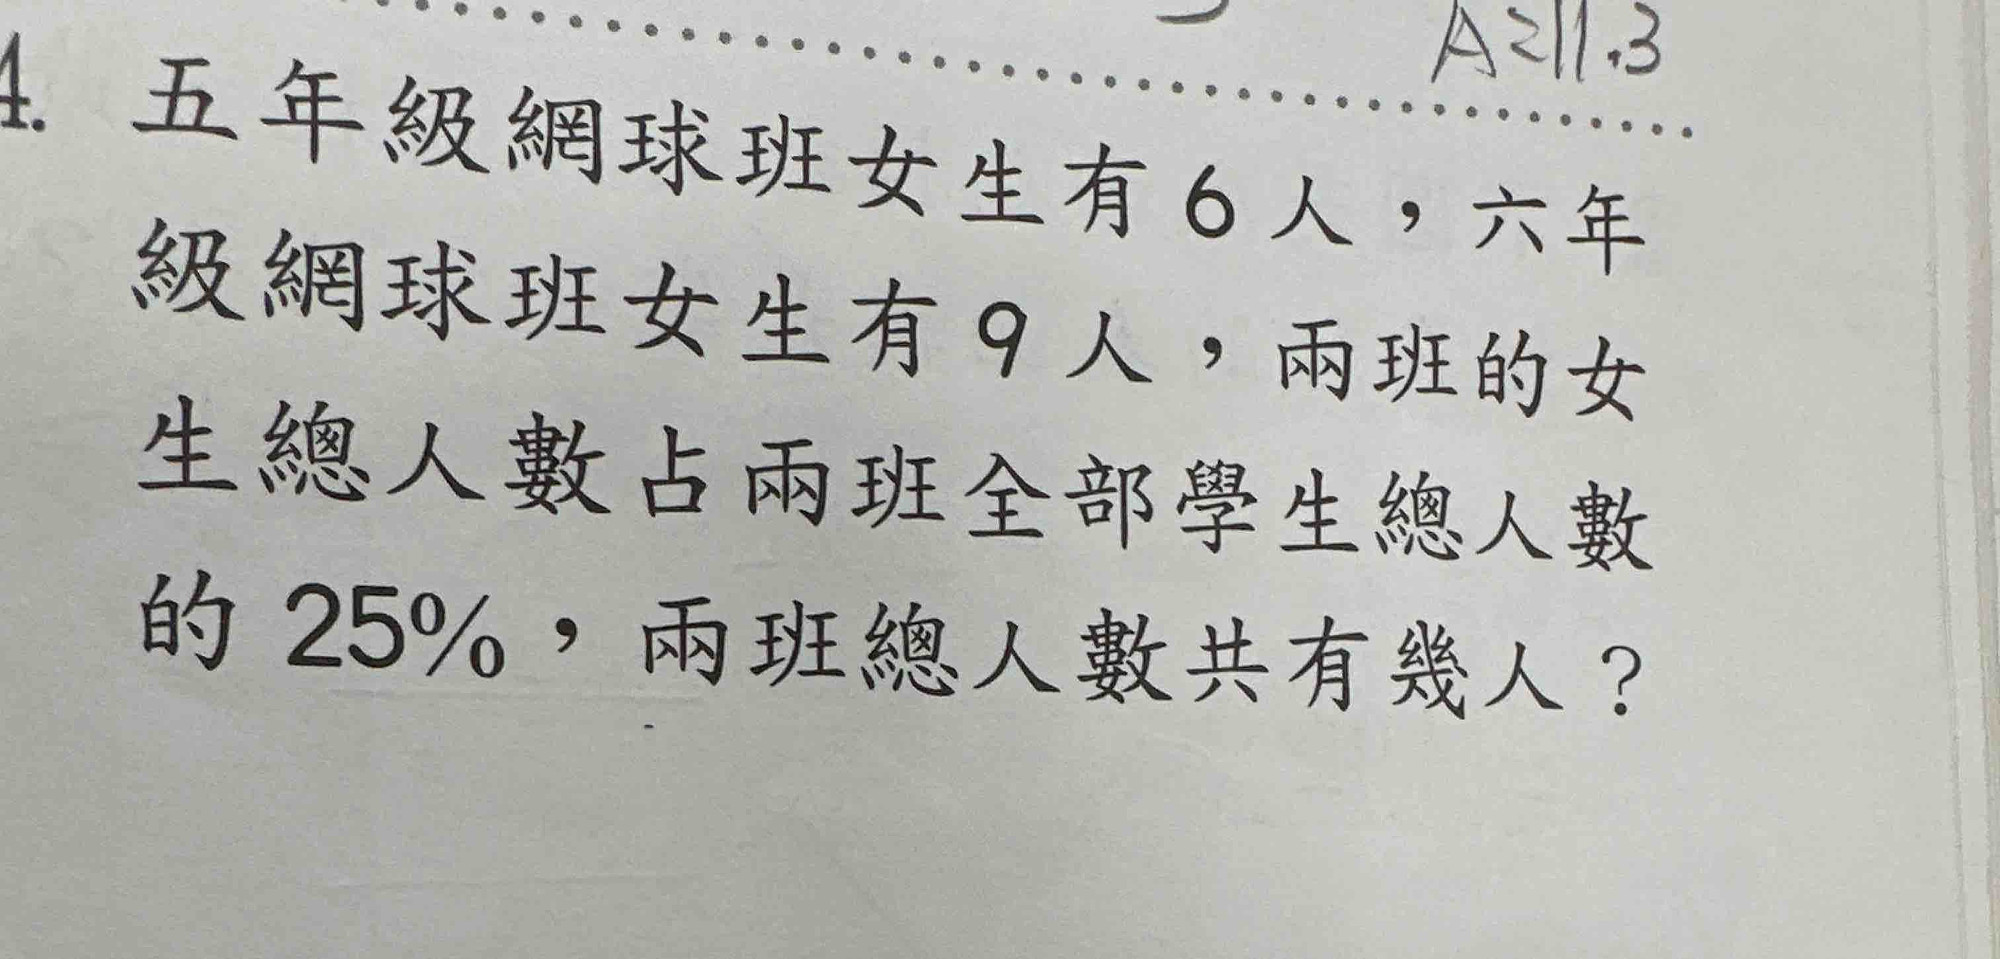 A=11.3
4. 五年級網球班女生有6人，六年
級網球班女生有9人，兩班的女
生總人數占兩班全部學生總人數
的 25%，兩班總人數共有幾人？